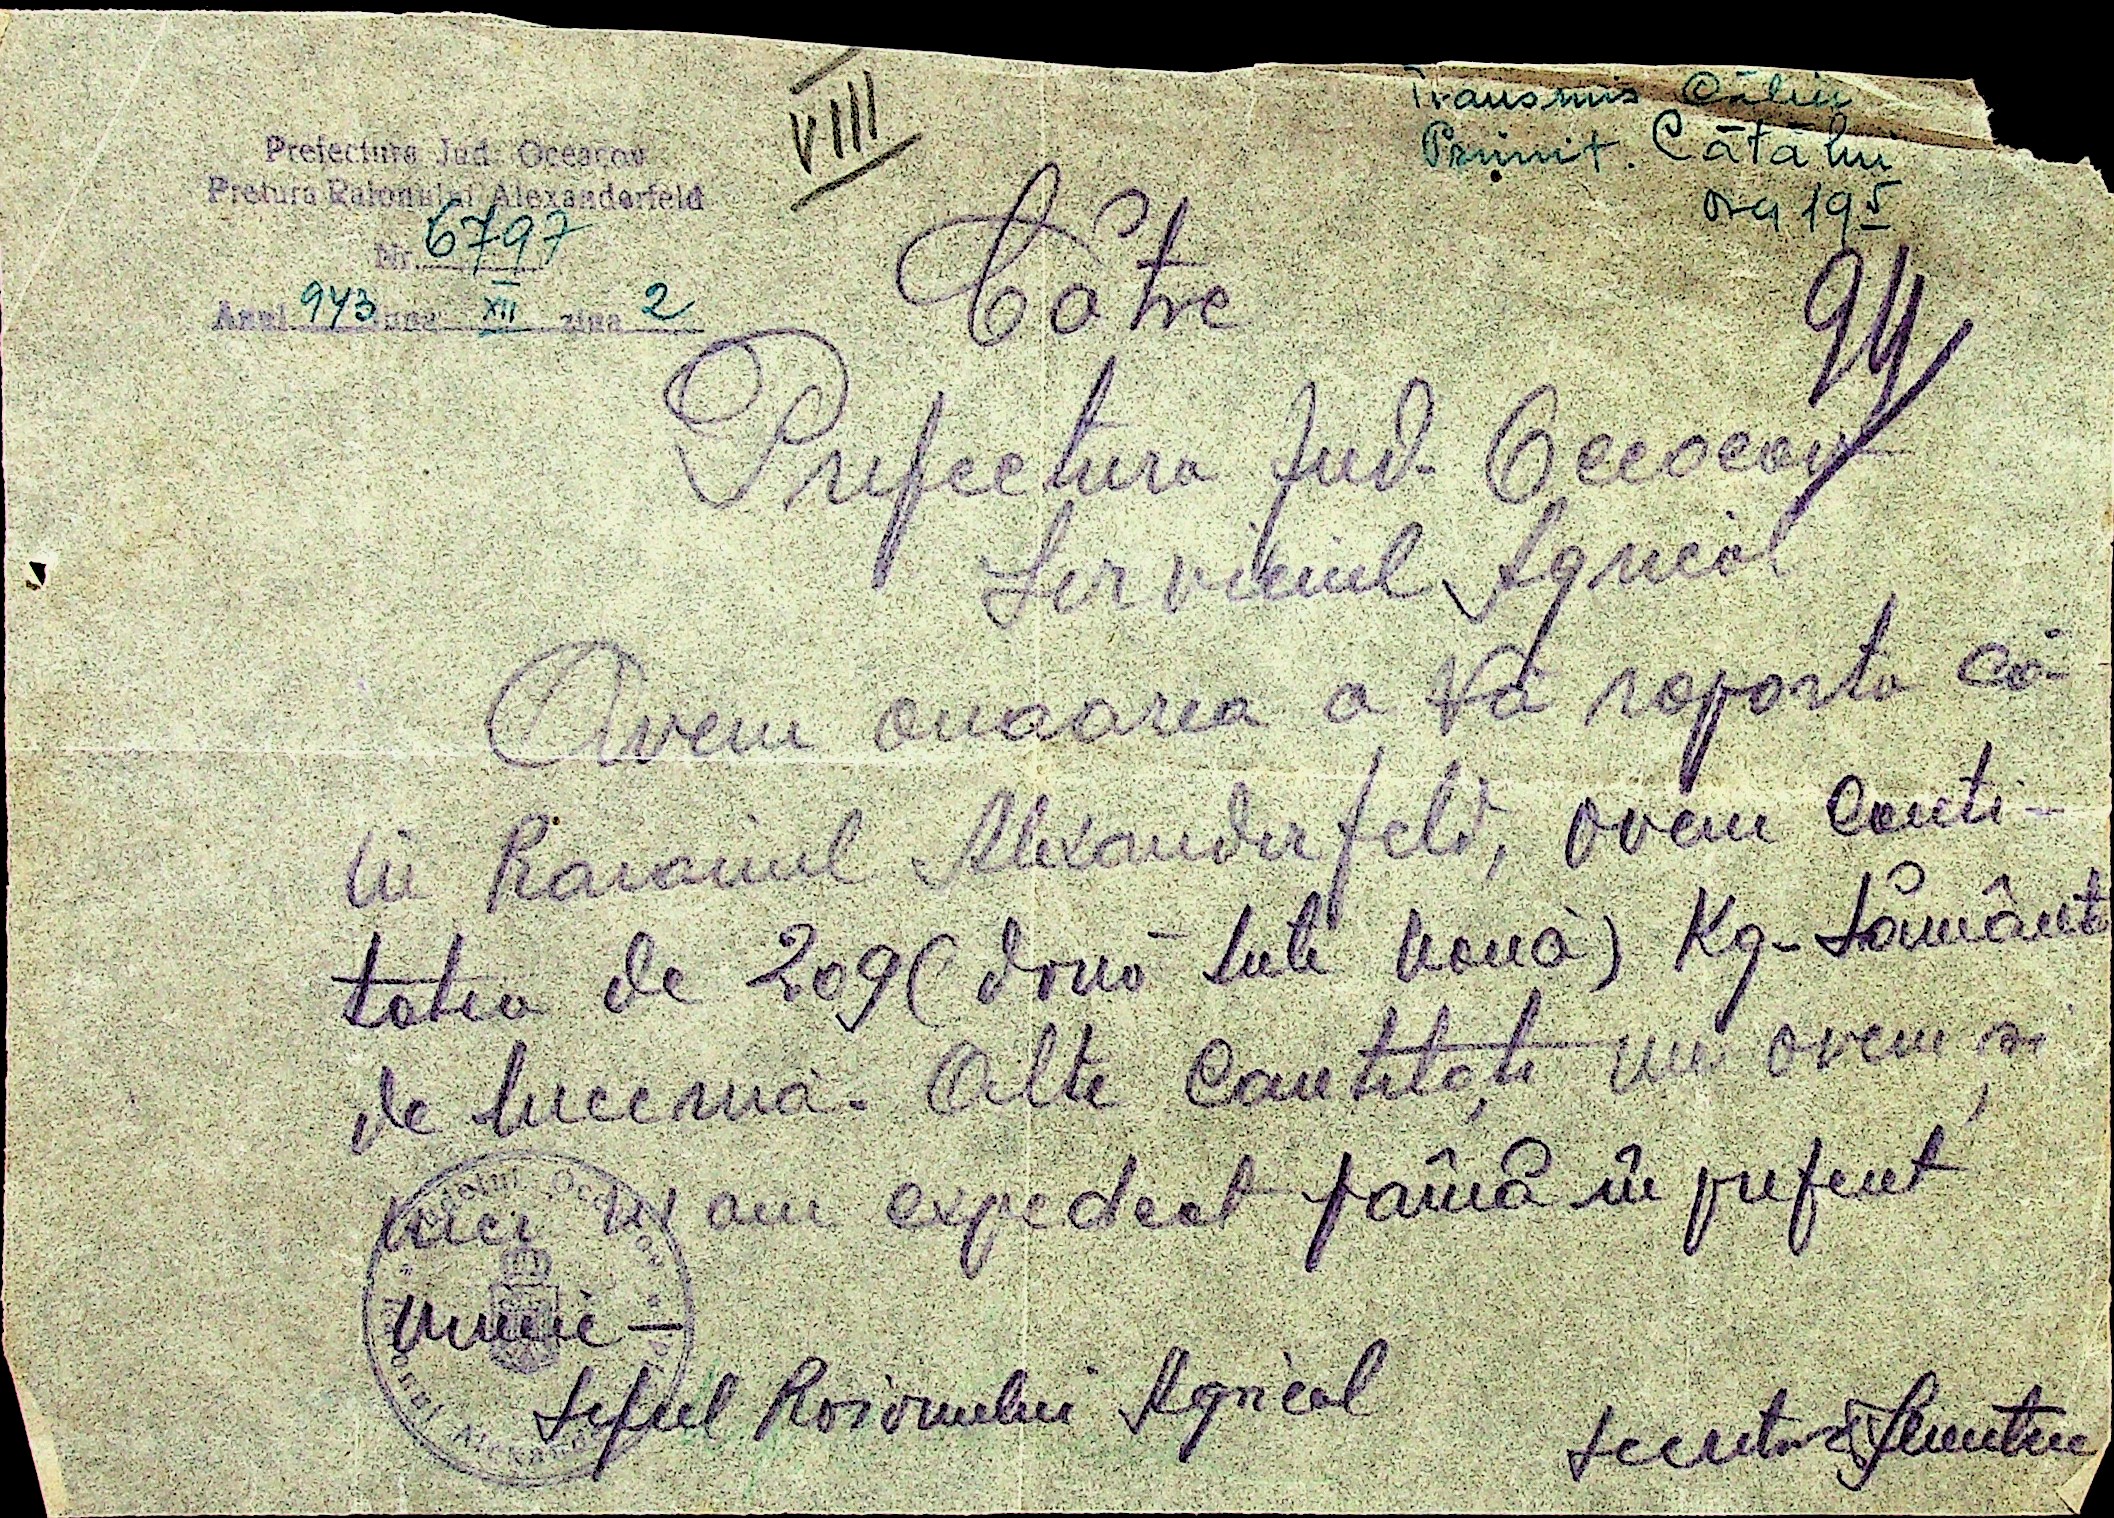 VIII
Transmis Călin
Primit. Cătălui
ora 19 5
Prefectura Jud. Oceacov
Pretura Raionului Alexanderfeld
Nr. 6797
Anul 943 luna XII ziua 2
94
Către
Prefectura Jud. Oceacov
Serviciul Agricol
Avem onoarea a Vă raporta că
în Raionul Alexanderfeld, avem canti-
tatea de 209 (două sute nouă) Kg. sămânță
de lucernă. Alte cantități nu avem și
nici n'am expediat până în prezent
nimic —
Șeful Raionului Agricol
Secretar